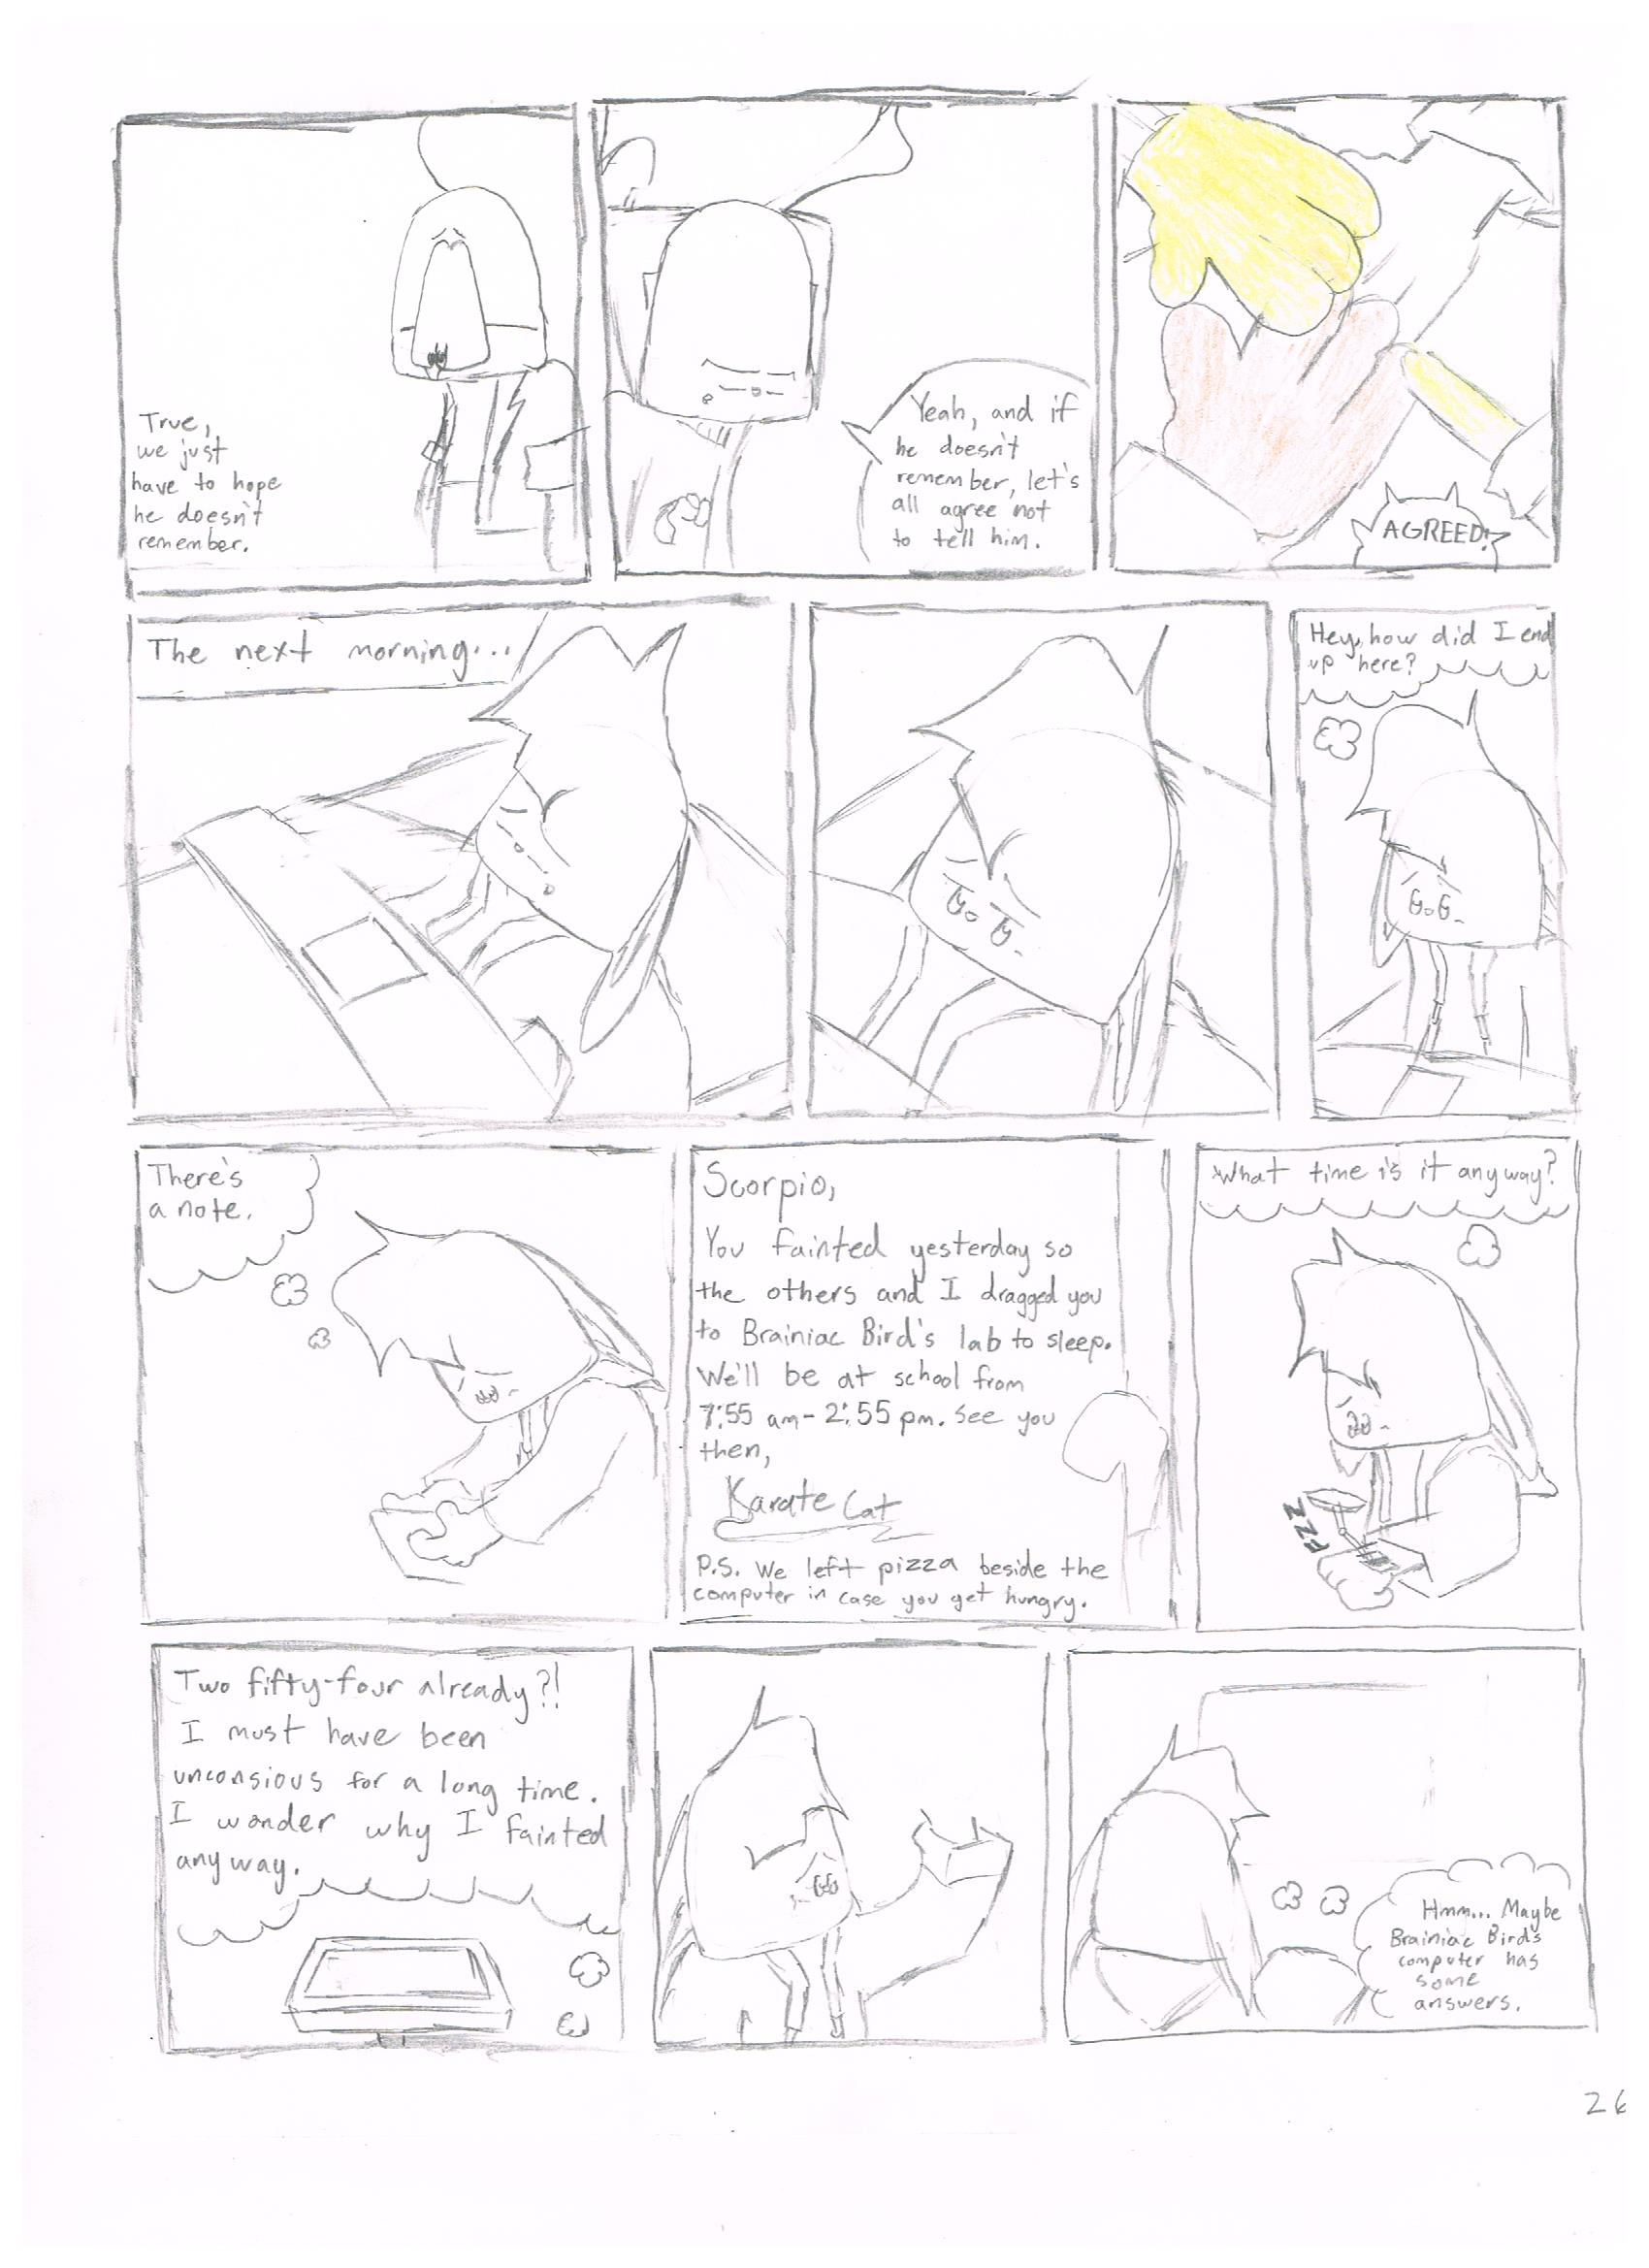 True,
we just
have to hope
he doesn't
remember.
Yeah, and if
he doesn't
remember, let's
all agree not
to tell him.
AGREED!
The next morning...
Hey, how did I end
up here?
There's
a note.
Scorpio,
You fainted yesterday so
the others and I dragged you
to Brainiac Bird's lab to sleep.
We'll be at school from
7:55 am-2:55 pm. See you
then,
Karate Cat
P.S. We left pizza beside the
computer in case you get hungry.
What time is it anyway?
FZZZ
Two fifty-four already?!
I must have been
unconsious for a long time.
I wonder why I fainted
anyway.
Hmm... Maybe
Brainiac Bird's
computer has
some
answers.
26